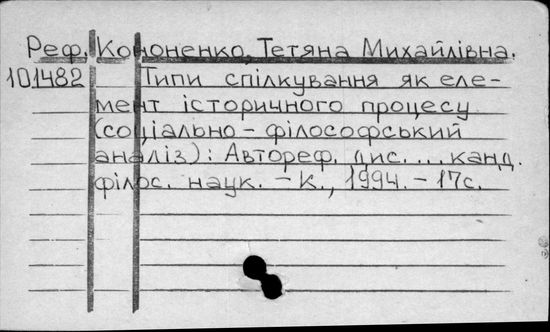 Реф. Кононенко, Тетяна Михайлівна.
101482 Типи спілкування як еле-
мент історичного процесу
(соціально-філософський
аналіз): Автореф. дис. ... канд.
філос. наук. - К., 1994. - 17с.